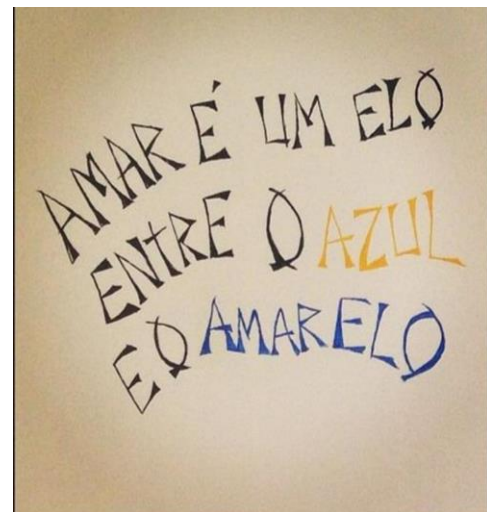 AMAR É UM ELO
ENTRE O AZUL
E O AMARELO